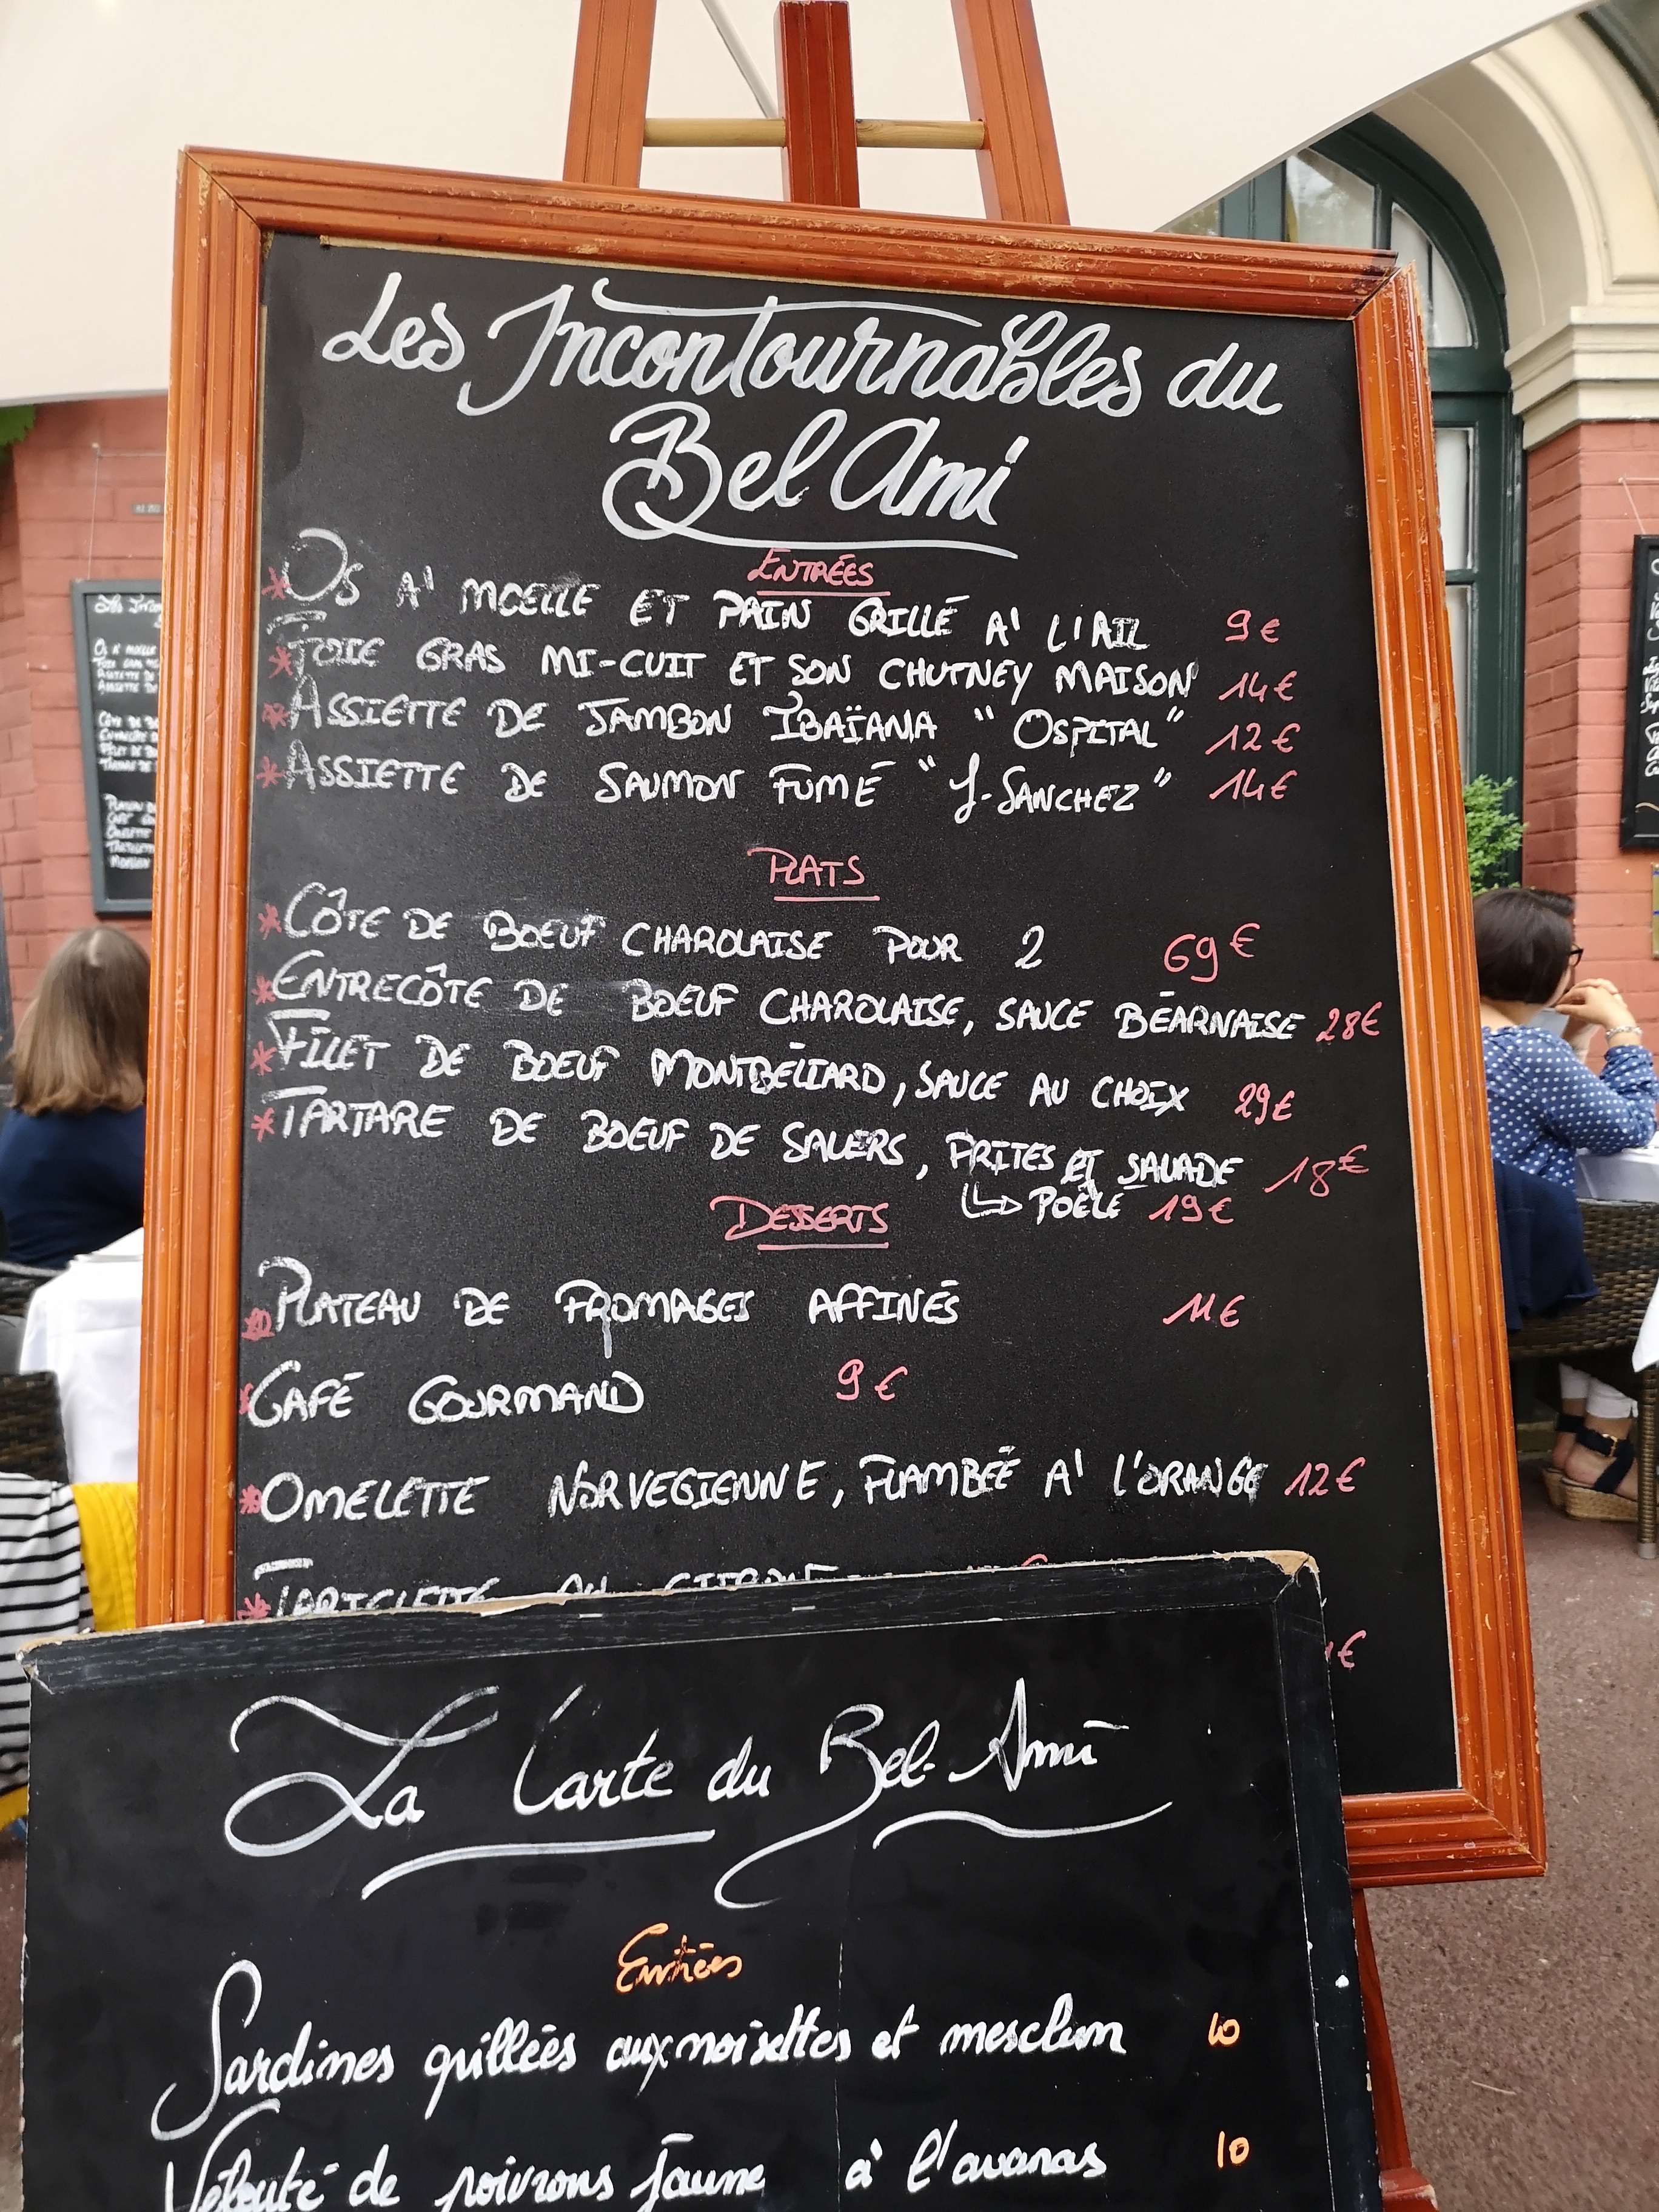 Les Incontournables du
Bel Ami
ENTRÉES
* OS A' MOELLE ET PAIN GRILLÉ A' L'AIL 9€
* FOIE GRAS MI-CUIT ET SON CHUTNEY MAISON 14€
* ASSIETTE DE JAMBON IBAÏANA "OSPITAL" 12€
* ASSIETTE DE SAUMON FUMÉ "J-SANCHEZ" 14€
PLATS
* CÔTE DE BOEUF CHAROLAISE POUR 2 69€
* ENTRECÔTE DE BOEUF CHAROLAISE, SAUCE BÉARNAISE 28€
* FILET DE BOEUF MONTBÉLIARD, SAUCE AU CHOIX 29€
* TARTARE DE BOEUF DE SALERS, FRITES ET SALADE 18€
POÊLÉ 19€
DESSERTS
* PLATEAU DE FROMAGES AFFINÉS 11€
* CAFÉ GOURMAND 9€
* OMELETTE NORVEGIENNE, FLAMBÉÉ A' L'ORANGE 12€
* TARTELETTE AU CITRON
€
La Carte du Bel-Ami
Entrées
Sardines grillées aux noisettes et mesclum 10
Velouté de poivrons jaune à l'avanas 10